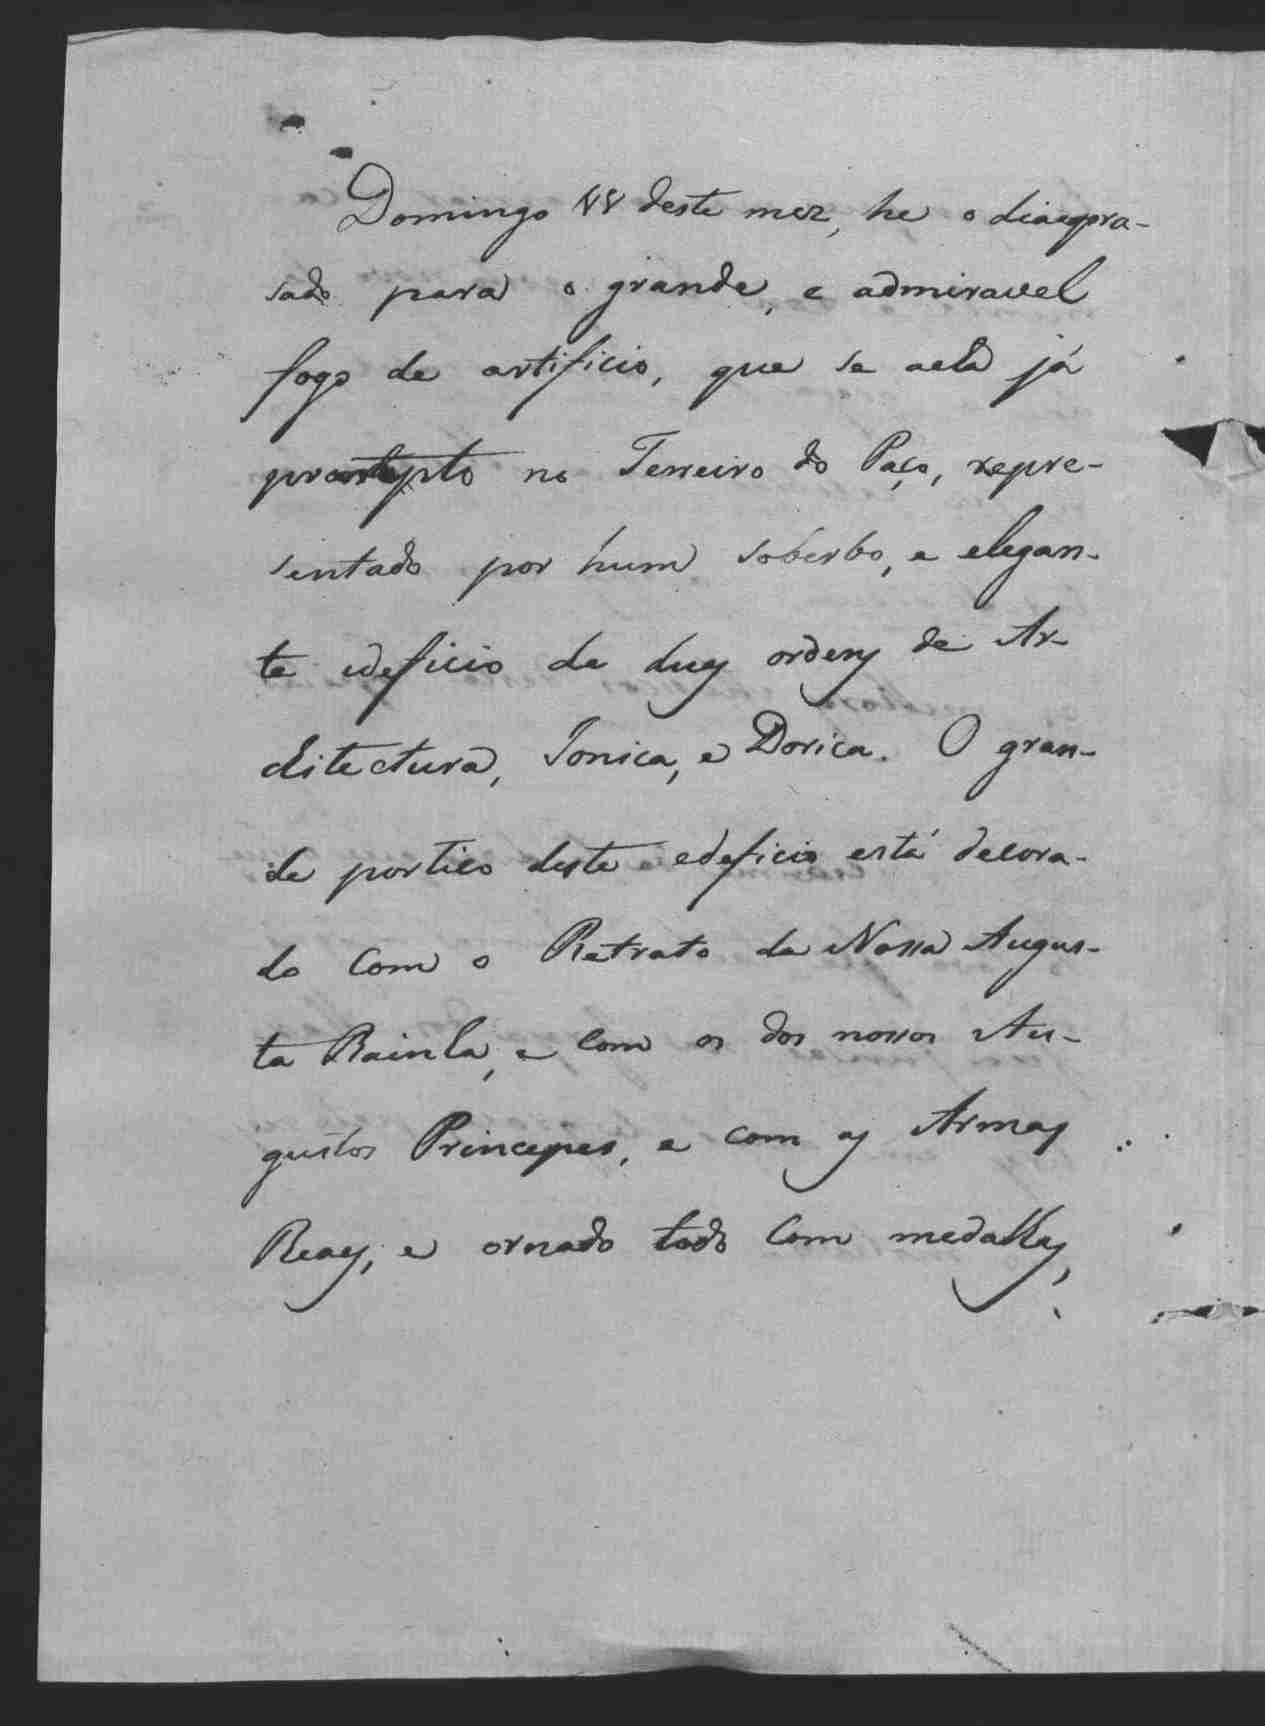 Domingo 11 deste mez, he o dia apra-
sado para o grande, e admiravel
fogo de artificio, que se acha já
prompto no Terreiro do Paço, repre-
sentado por hum soberbo, e elegan-
te edeficio de duas ordens de Ar-
chitectura, Jonica, e Dorica. O gran-
de portico deste edeficio está decora-
do com o Retrato da Nossa Augus-
ta Rainha, e com os dos nossos Au-
gustos Principes, e com as Armas
Reaes, e ornado todo com medalhas,